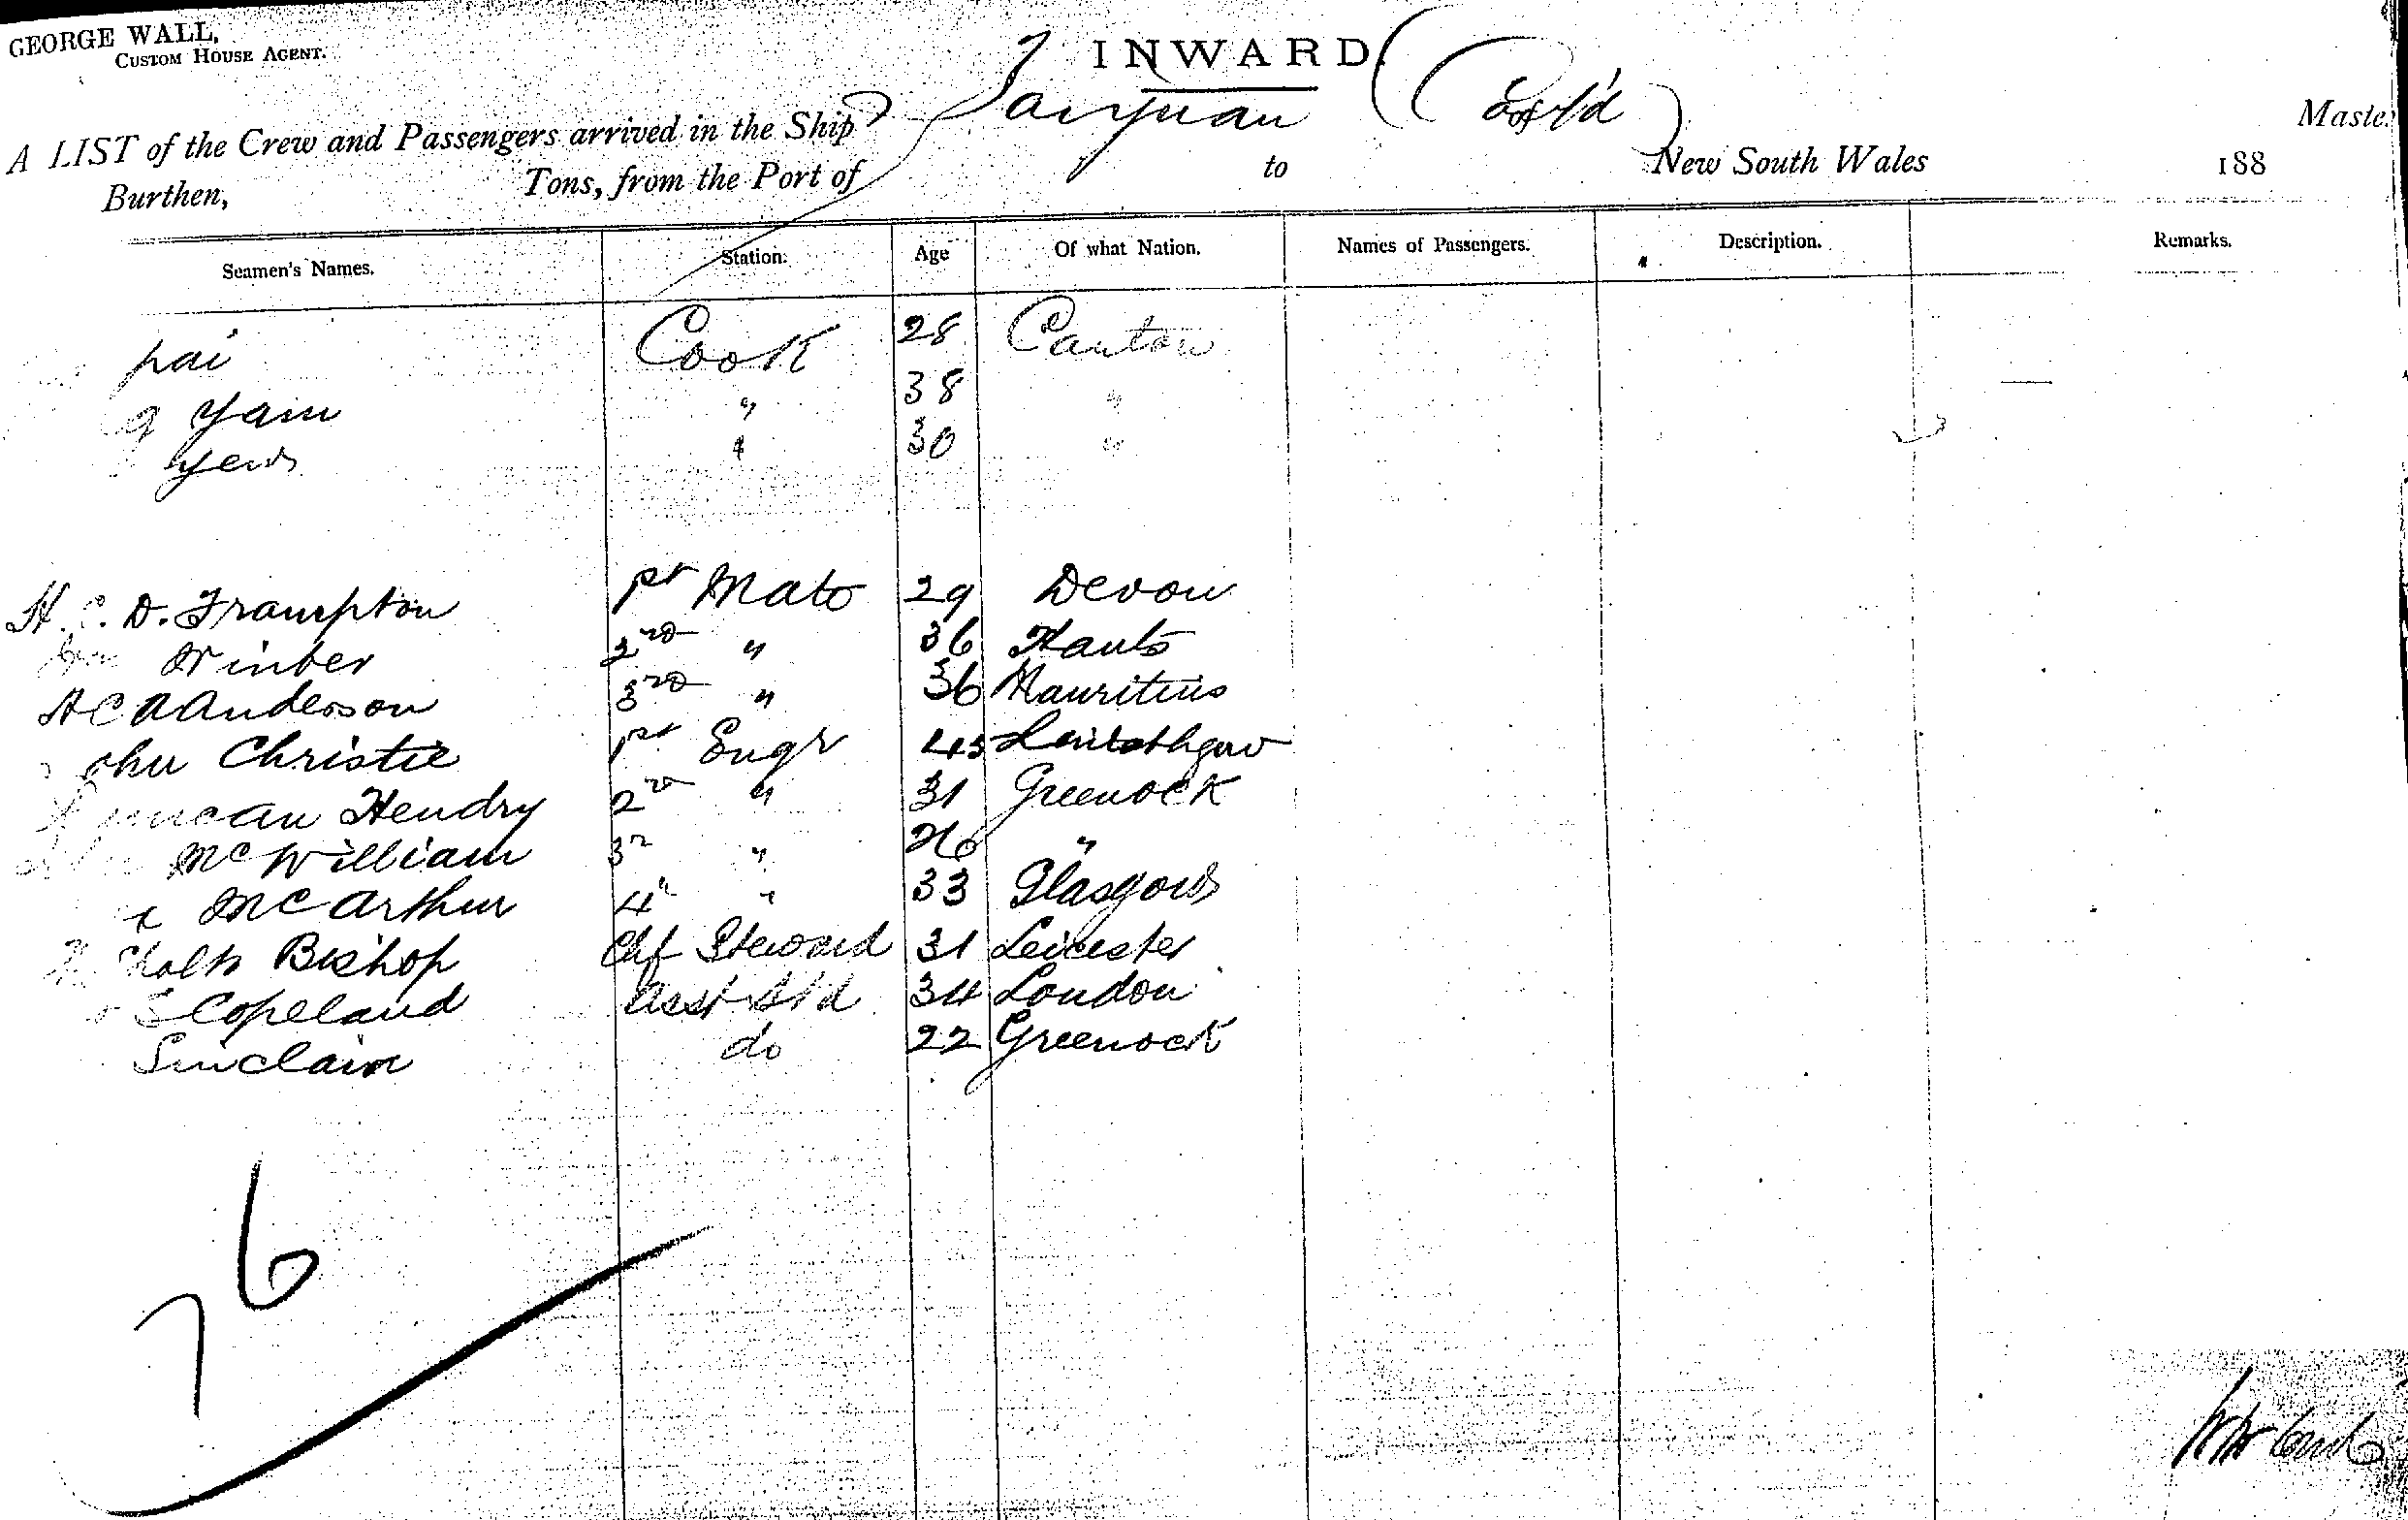 GEORGE WALL,
CUSTOM HOUSE AGENT.
INWARD.
A LIST of the Crew and Passengers arrived in the Ship Taiyuan (Cont'd) Master
Burthen, Tons, from the Port of to New South Wales 188
Seamen's Names. Station. Age Of what Nation. Names of Passengers. Description. Remarks.
pai Cook 28 Canton
g Yam " 38 "
yew " 30 "
H. C. D. Frampton 1st Mate 29 Devon
Winter 2nd " 36 Hants
H C A Anderson 3rd " 36 Mauritius
John Christie 1st Engr 43 Linlithgow
Duncan Hendry 2nd " 31 Greenock
McWilliam 3rd " 26 "
McArthur 4th " 33 Glasgow
Bishop Chf Steward 31 Leicester
Copeland Asst Std 34 London
Sinclair do 22 Greenock
76